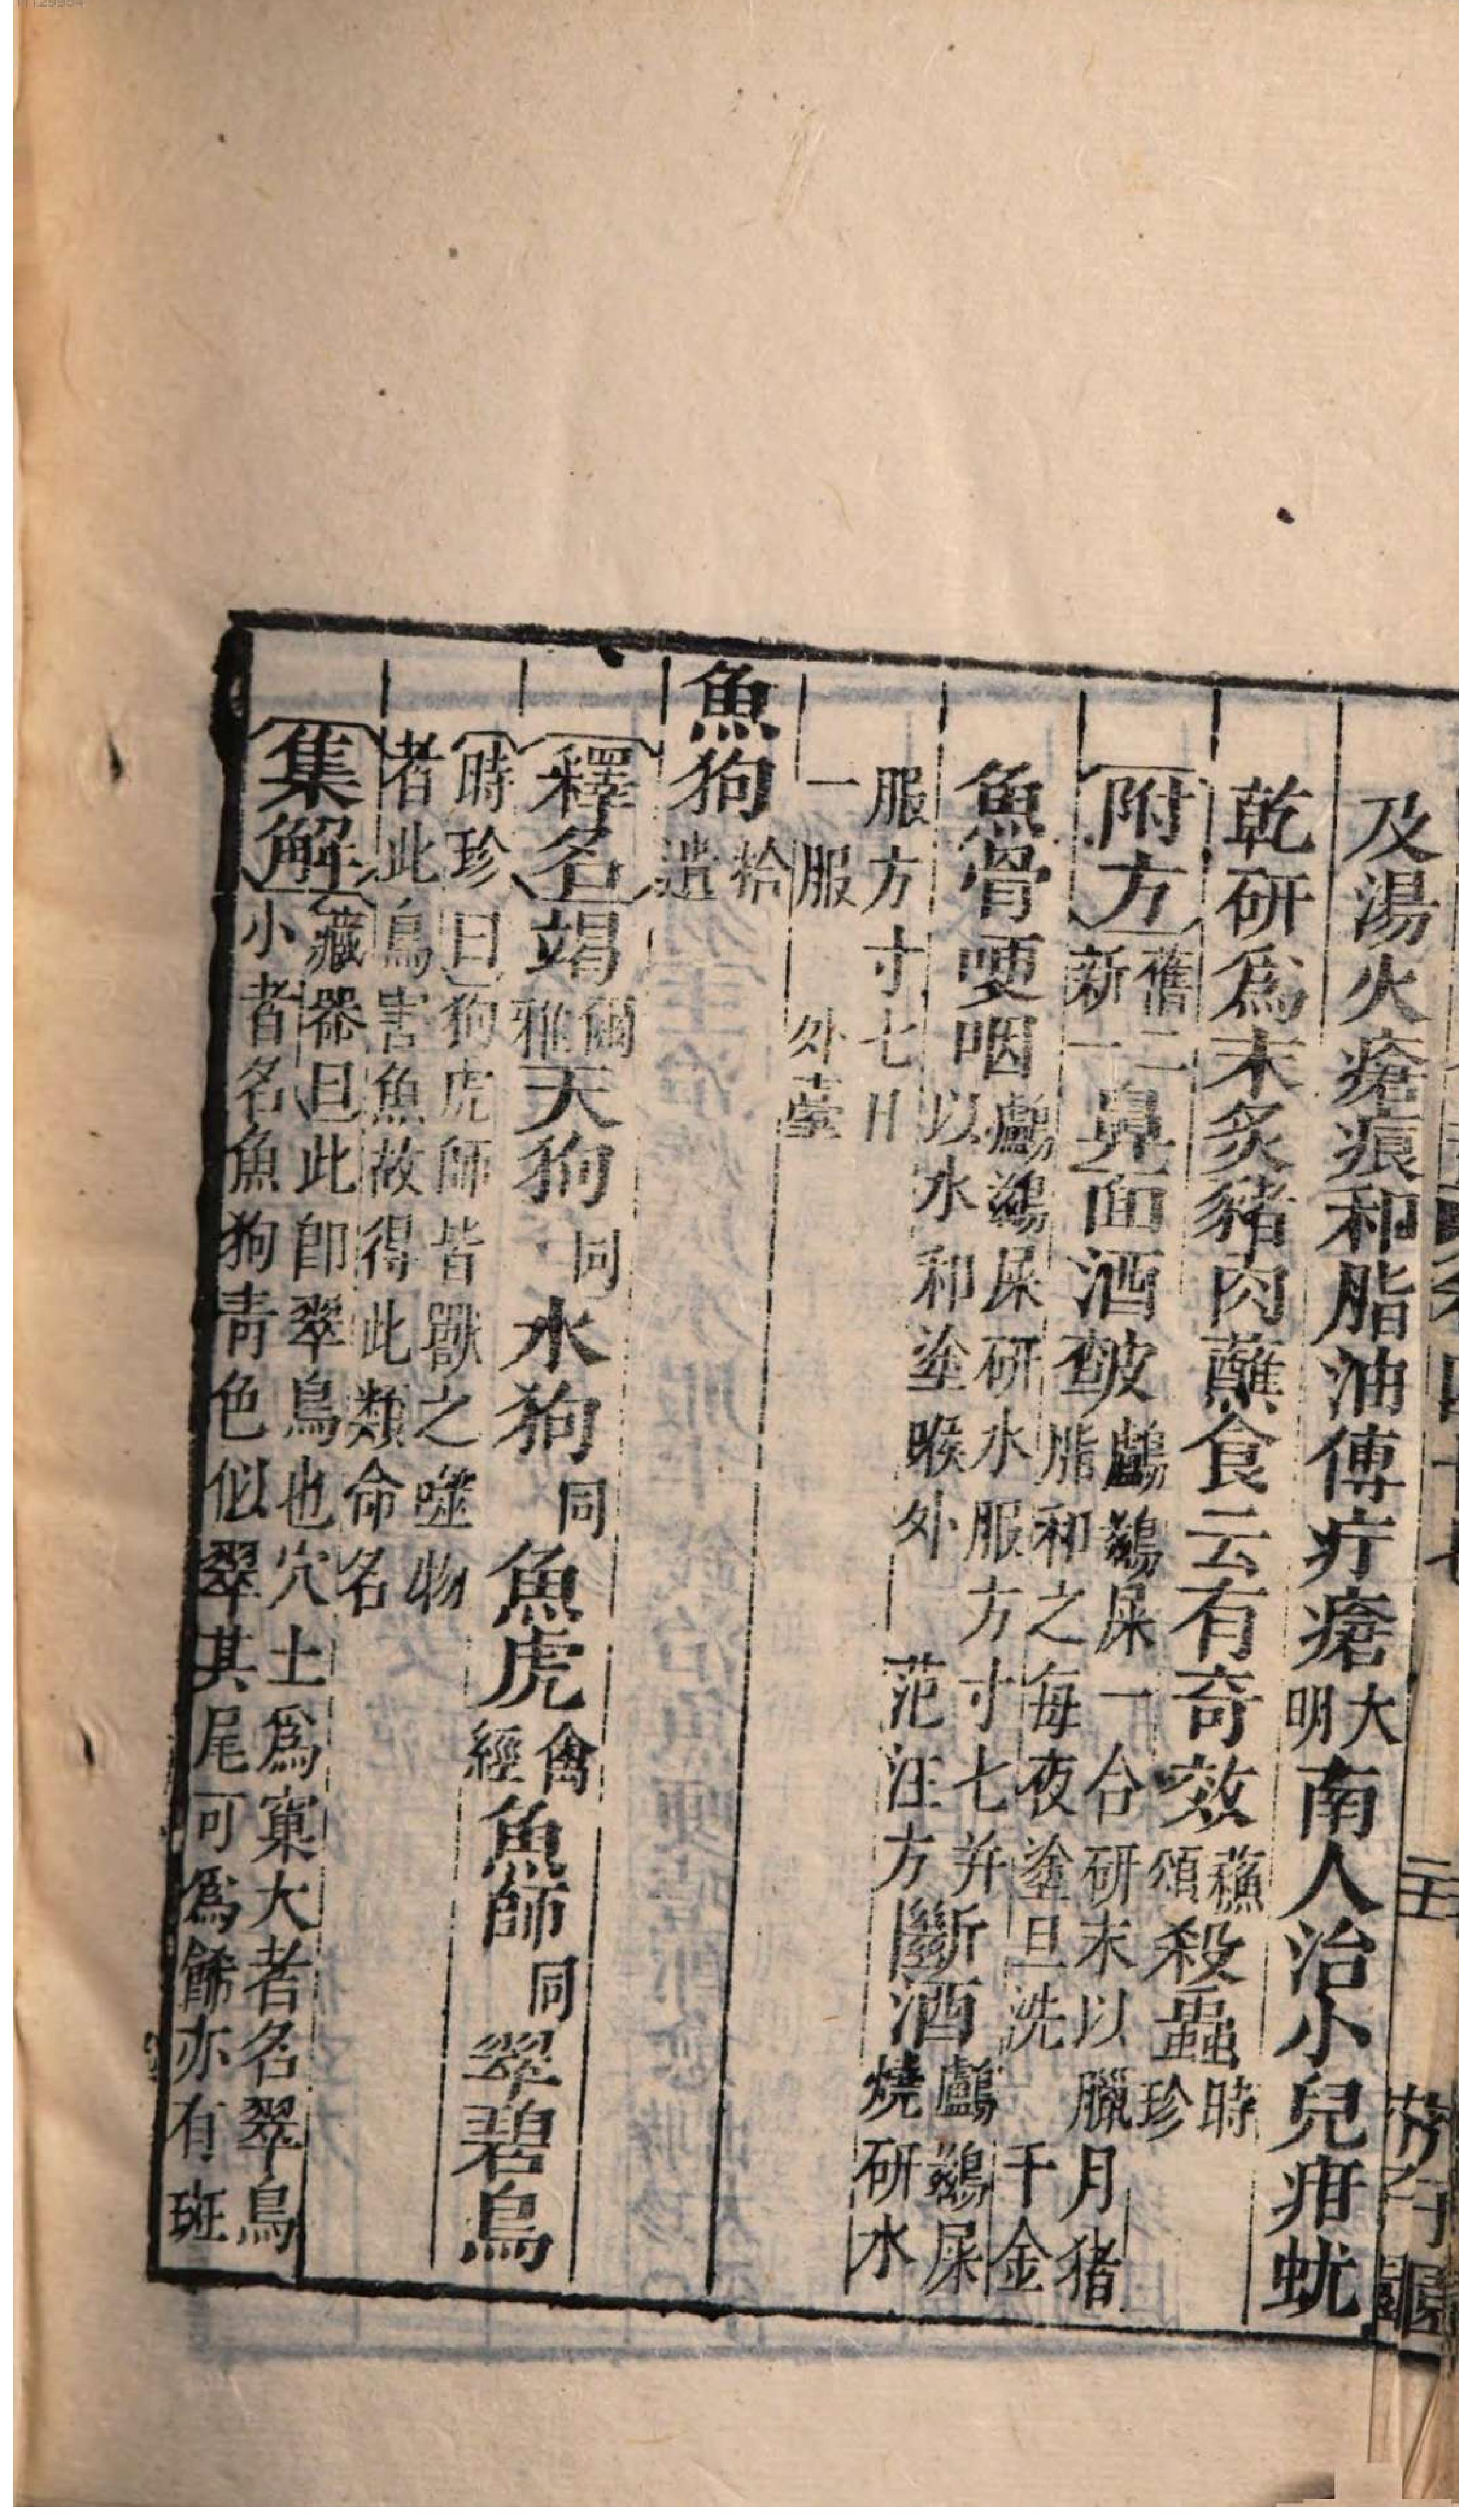 及湯火瘡痕和脂油傅疔瘡大明南人治小兒疳蚘
乾研為末炙豬肉蘸食云有奇效蘇頌殺蟲時珍
附方舊二新一鼻面酒皶鸕鷀屎一合研末以臘月猪脂和之每夜塗旦洗千金
魚骨哽咽鸕鷀屎研水服方寸七并以水和塗喉外范汪方斷酒鸕鷀屎燒研水
服方寸七日一服外臺
魚狗拾遺
釋名鴗爾雅天狗同水狗同魚虎禽經魚師同翠碧鳥
時珍曰狗虎師皆獸之噬物者此鳥害魚故得此類命名
集解藏器曰此即翠鳥也穴土為窠大者名翠鳥小者名魚狗青色似翠其尾可為飾亦有斑